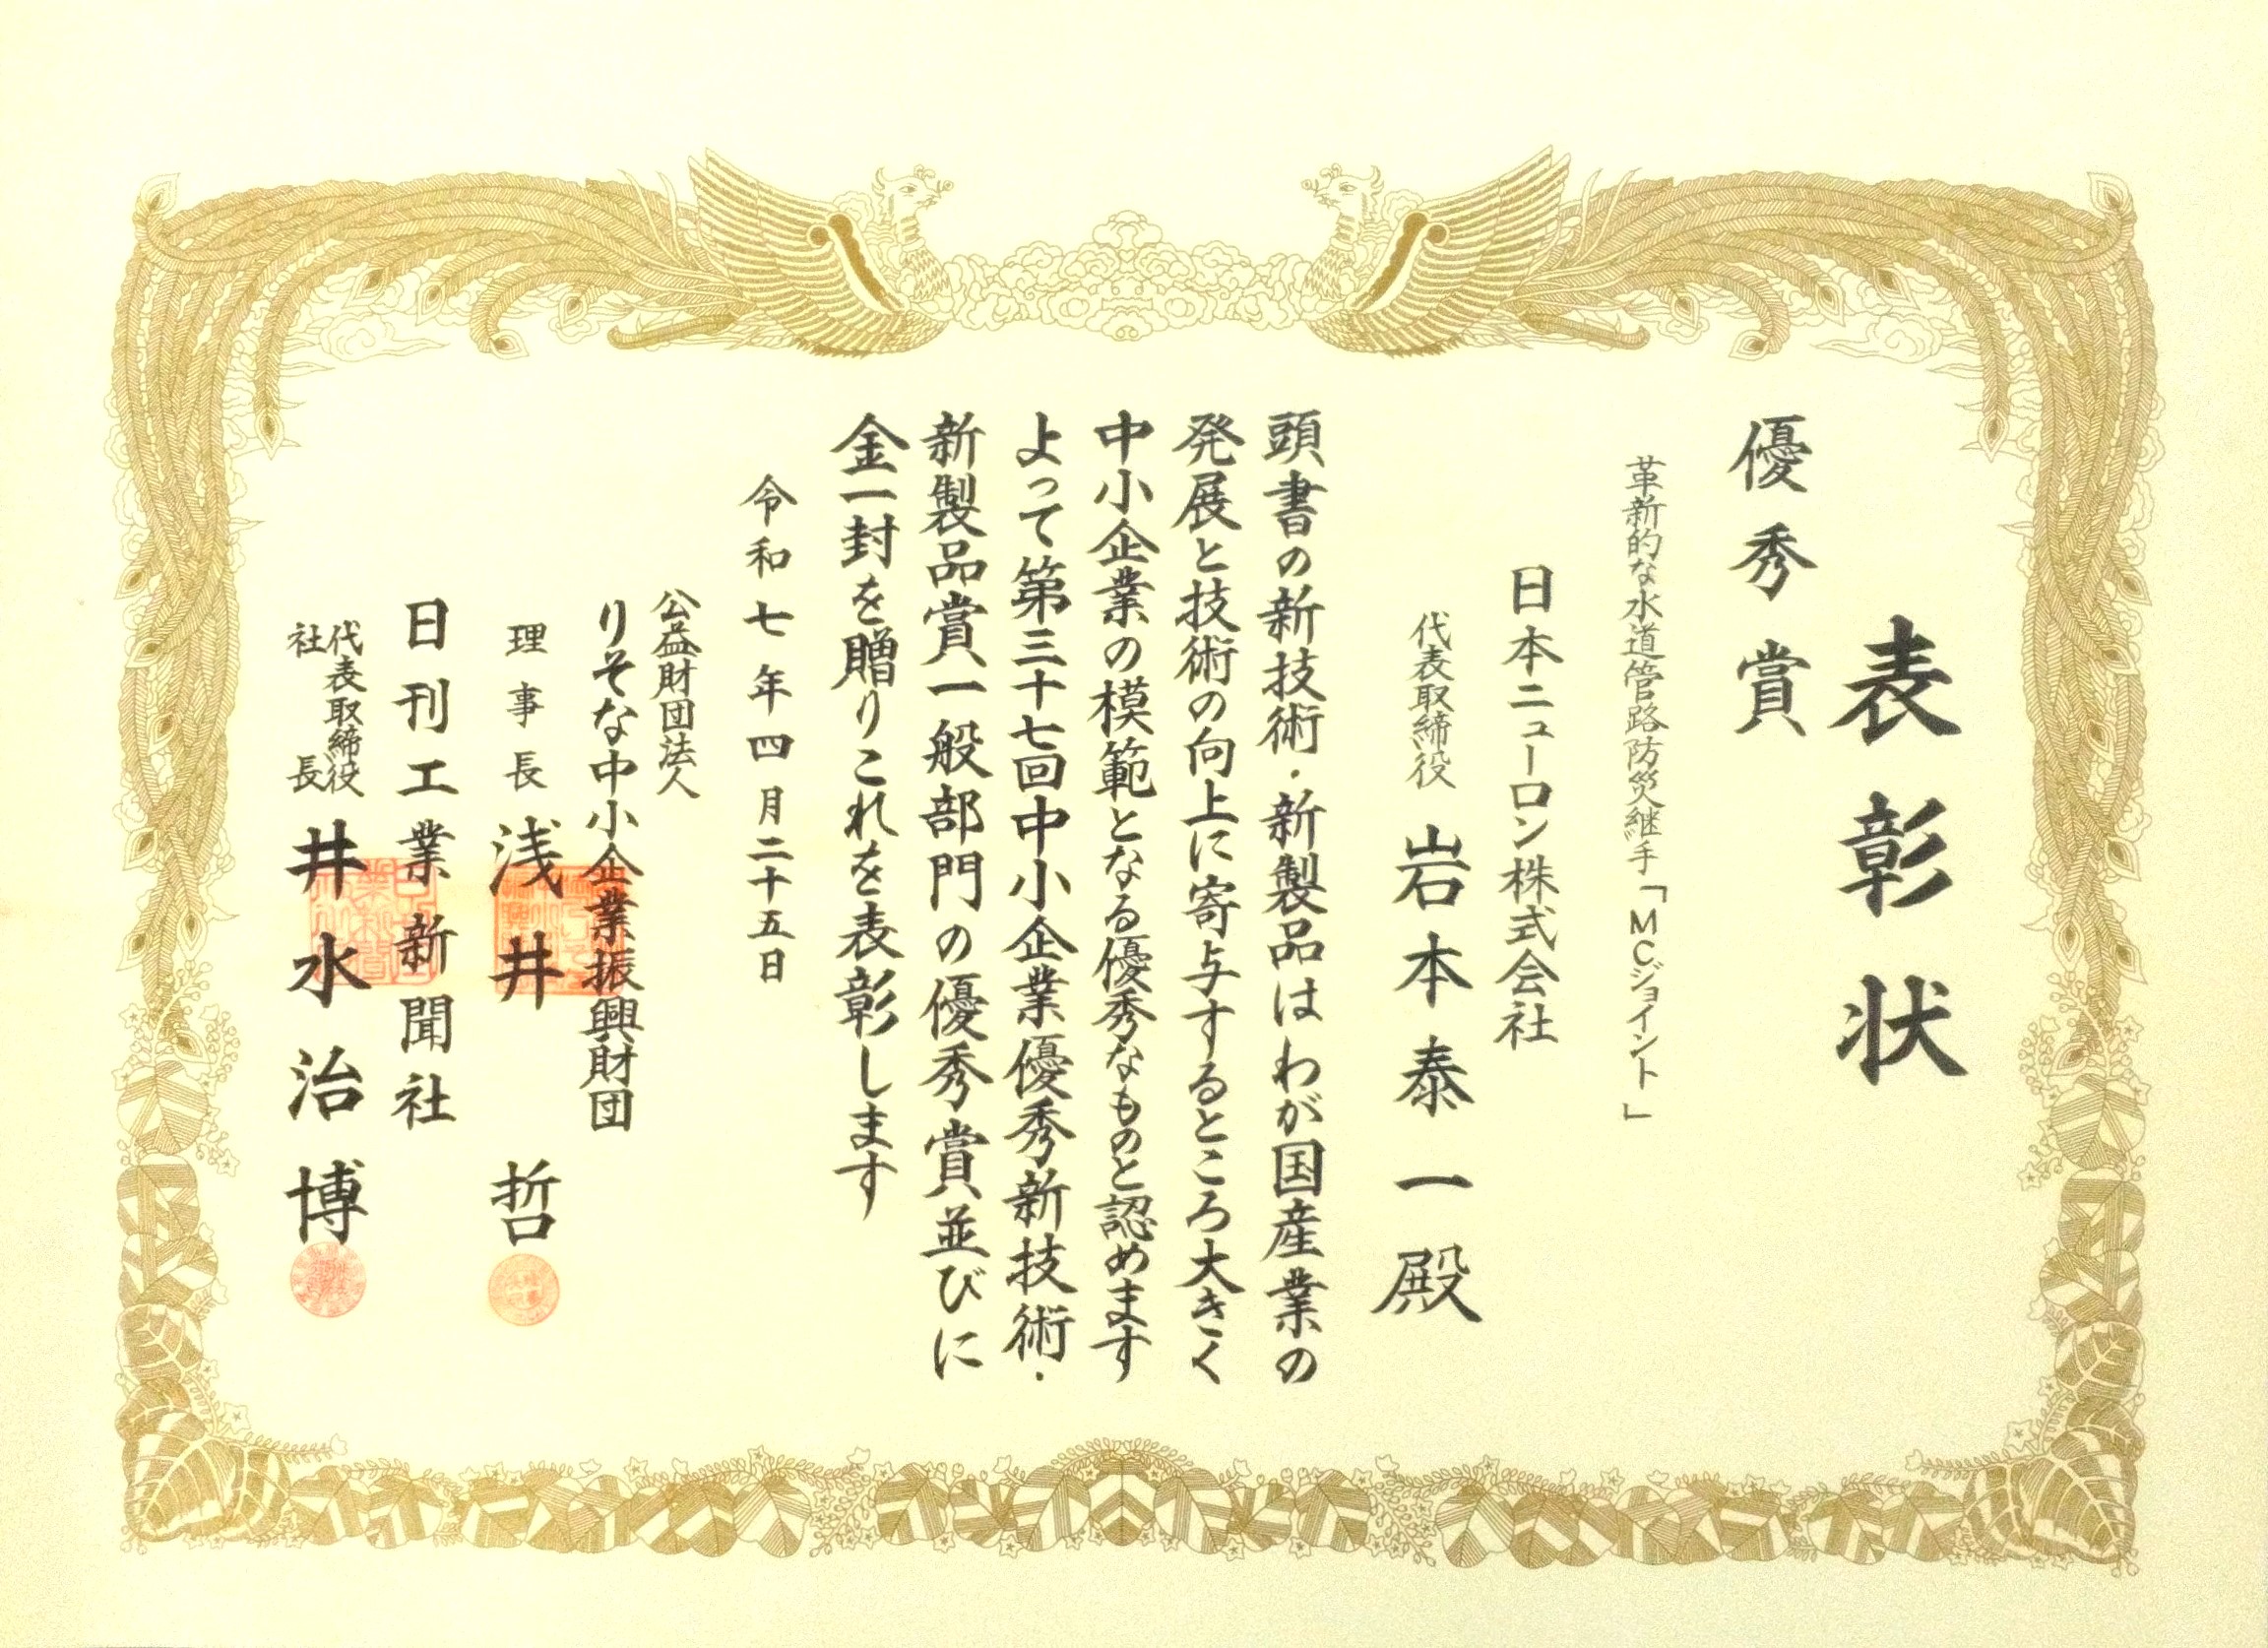 表彰状
優秀賞
革新的な水道管路防災継手「MCジョイント」
日本ニューロン株式会社
代表取締役 岩本泰一殿
頭書の新技術・新製品はわが国産業の
発展と技術の向上に寄与するところ大きく
中小企業の模範となる優秀なものと認めます
よって第三十七回中小企業優秀新技術・
新製品賞一般部門の優秀賞並びに
金一封を贈りこれを表彰します
令和七年四月二十五日
公益財団法人
りそな中小企業振興財団
理事長 浅井哲
日刊工業新聞社
代表取締役
社長 井水治博